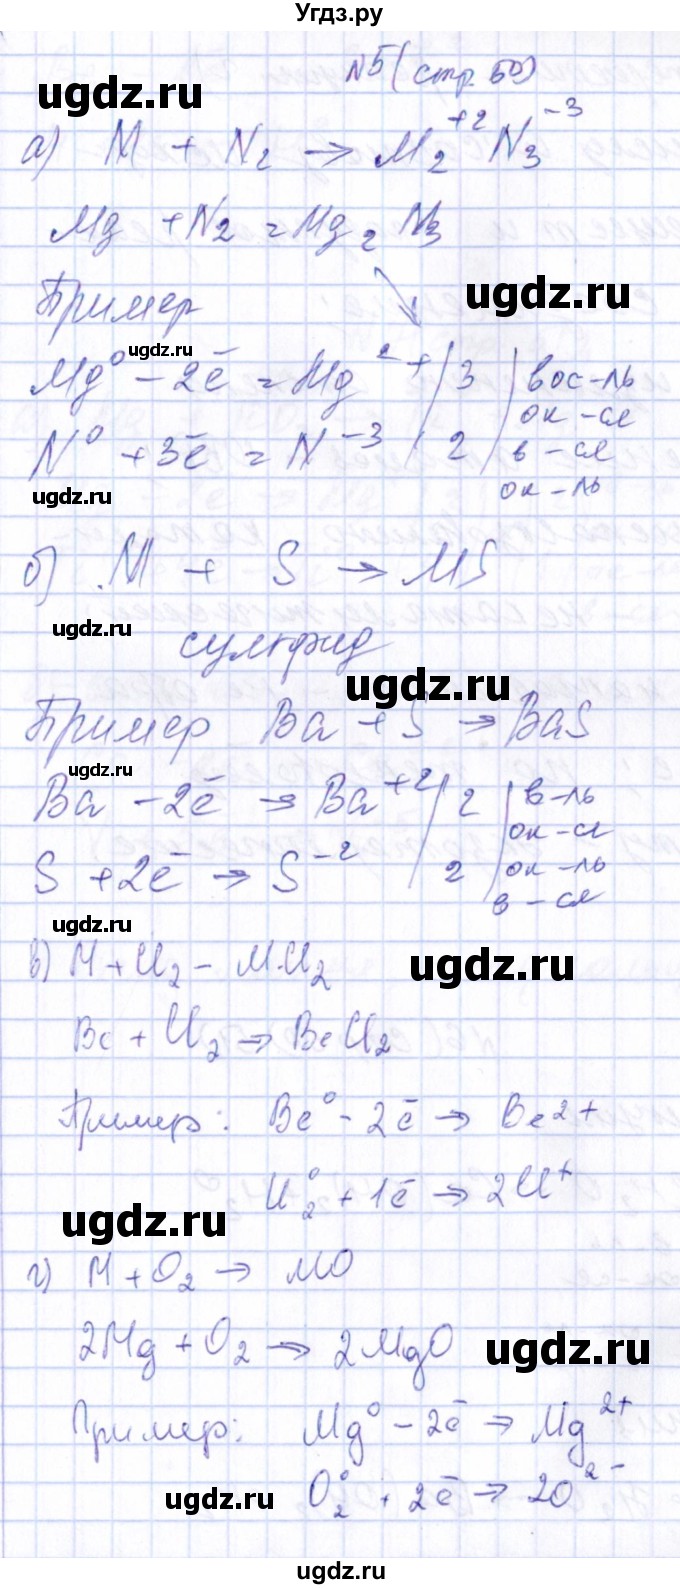 Угдз.ру
№5 (стр. 50)
ugdz.ru
а) M + N₂ → M₂⁺² N₃⁻³
Mg + N₂ = Mg₂ N₃
ugdz.ru
Пример
ugdz.ru
Mg⁰ - 2ē = Mg²⁺ / 3 | вос-ль
ок-ся
N⁰ + 3ē = N⁻³ / 2 | в-ся
ок-ль
ugdz.ru
б) M + S → MS
ugdz.ru
сульфид
ugdz.ru
Пример Ba + S → BaS
ugdz.ru
Ba - 2ē → Ba⁺² / 2 | в-ль
ок-ся
S + 2ē → S⁻² / 2 | ок-ль
в-ся
ugdz.ru
в) M + Cl₂ - MCl₂
ugdz.ru
Be + Cl₂ → BeCl₂
Пример: Be⁰ - 2ē → Be²⁺
Cl₂⁰ + 1ē → 2Cl⁺
ugdz.ru
г) M + O₂ → MO
2Mg + O₂ → 2MgO
ugdz.ru
Пример: Mg⁰ - 2ē → Mg²⁺
O₂⁰ + 2ē → 2O²⁻
ugdz.ru
ugdz.ru